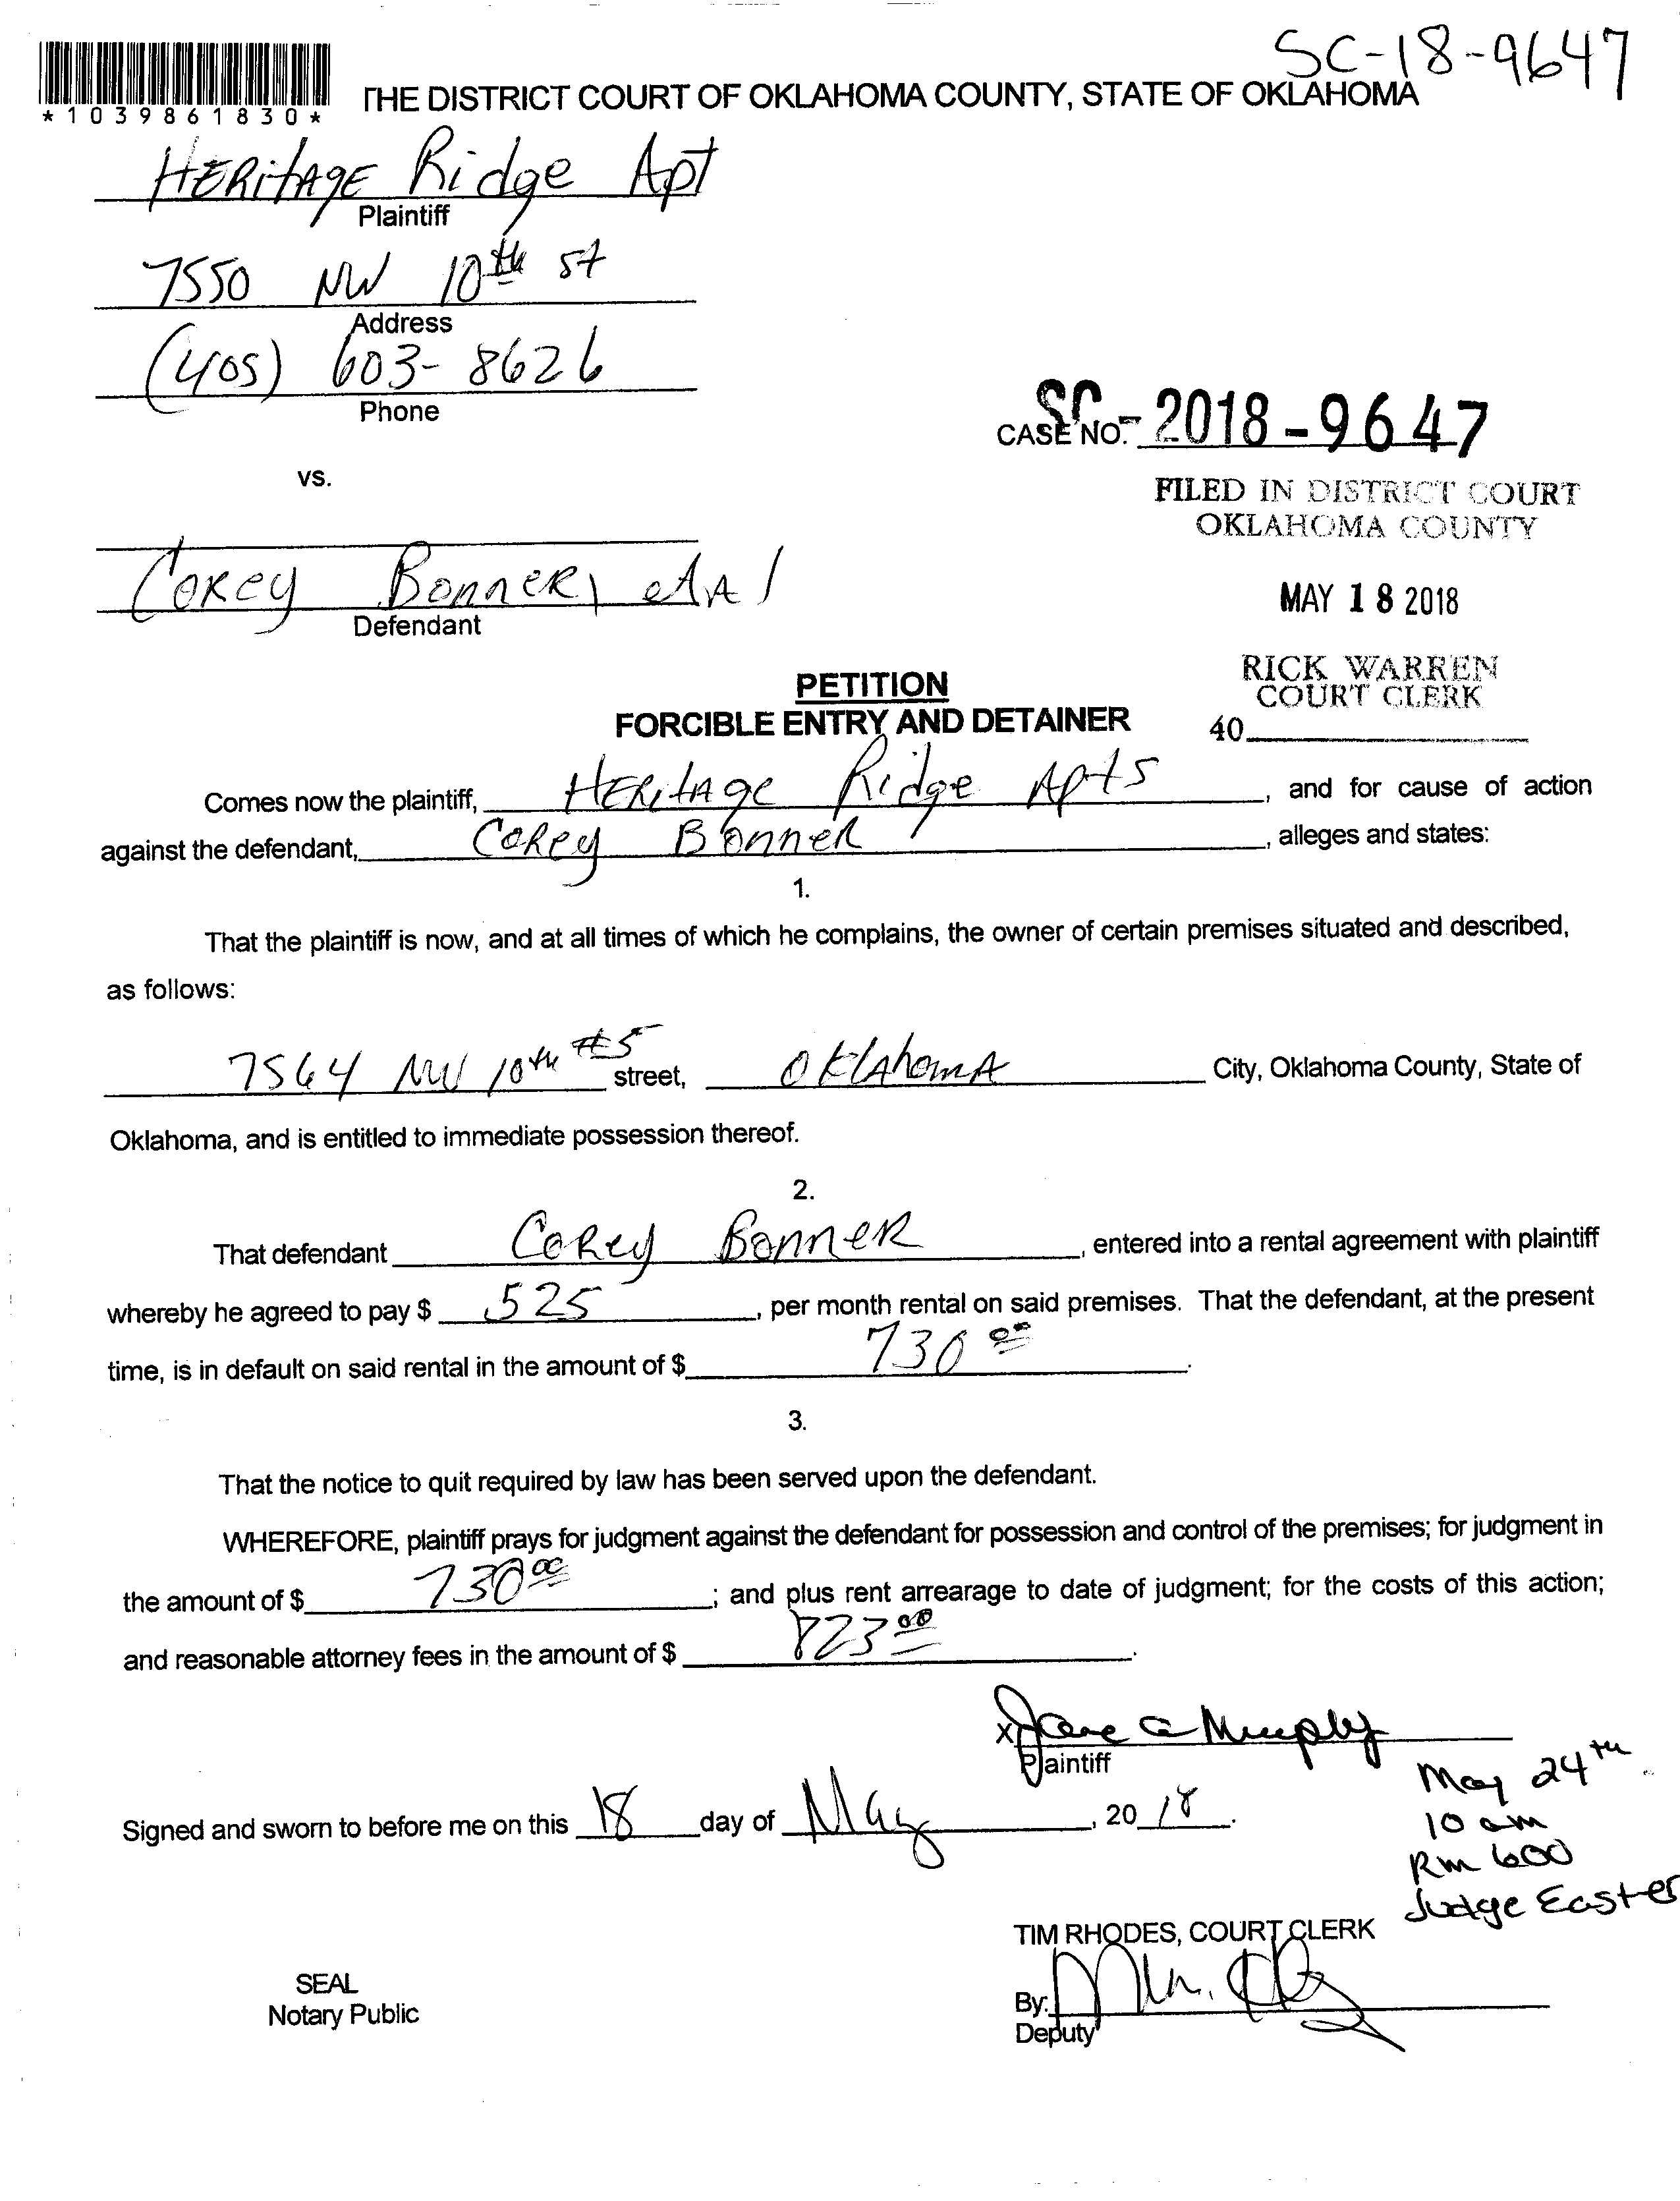 SC-18-9647
*1039861830*
THE DISTRICT COURT OF OKLAHOMA COUNTY, STATE OF OKLAHOMA
HERitAgE Ridge Apt
Plaintiff
7550 NW 10th st
Address
(405) 603-8626
Phone
CASE NO. SC-2018-9647
vs.
FILED IN DISTRICT COURT
OKLAHOMA COUNTY
Corey Bonner, etAl
Defendant
MAY 18 2018
RICK WARREN
COURT CLERK
40
PETITION
FORCIBLE ENTRY AND DETAINER
Comes now the plaintiff, HERitAge Ridge Apts, and for cause of action
against the defendant, Corey Bonner, alleges and states:
1.
That the plaintiff is now, and at all times of which he complains, the owner of certain premises situated and described,
as follows:
7564 NW 10th #5 street, OklAhomA City, Oklahoma County, State of
Oklahoma, and is entitled to immediate possession thereof.
2.
That defendant Corey Bonner, entered into a rental agreement with plaintiff
whereby he agreed to pay $ 525, per month rental on said premises. That the defendant, at the present
time, is in default on said rental in the amount of $ 730 00.
3.
That the notice to quit required by law has been served upon the defendant.
WHEREFORE, plaintiff prays for judgment against the defendant for possession and control of the premises; for judgment in
the amount of $ 730 00; and plus rent arrearage to date of judgment; for the costs of this action;
and reasonable attorney fees in the amount of $ 823 00.
x Jane a Murphy
Plaintiff
May 24th
10 am
Rm 600
Judge Easter
Signed and sworn to before me on this 18 day of May, 2018.
TIM RHODES, COURT CLERK
SEAL
Notary Public
By:
Deputy